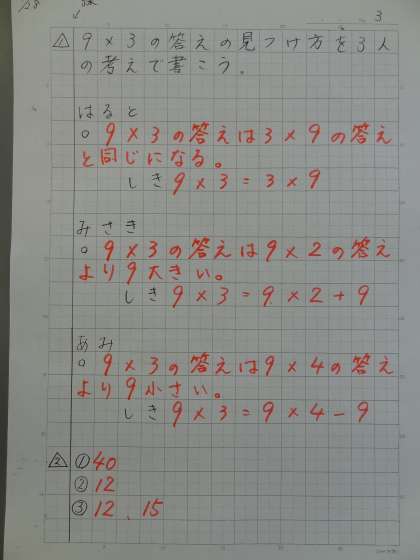 3
△1 9×3の答えの見つけ方を3人
の考えで書こう。
はると
○ 9×3の答えは3×9の答え
と同じになる。
しき 9×3=3×9
みさき
○ 9×3の答えは9×2の答え
より9大きい。
しき 9×3=9×2+9
あみ
○ 9×3の答えは9×4の答え
より9小さい。
しき 9×3=9×4-9
△2 ①40
②12
③12、15